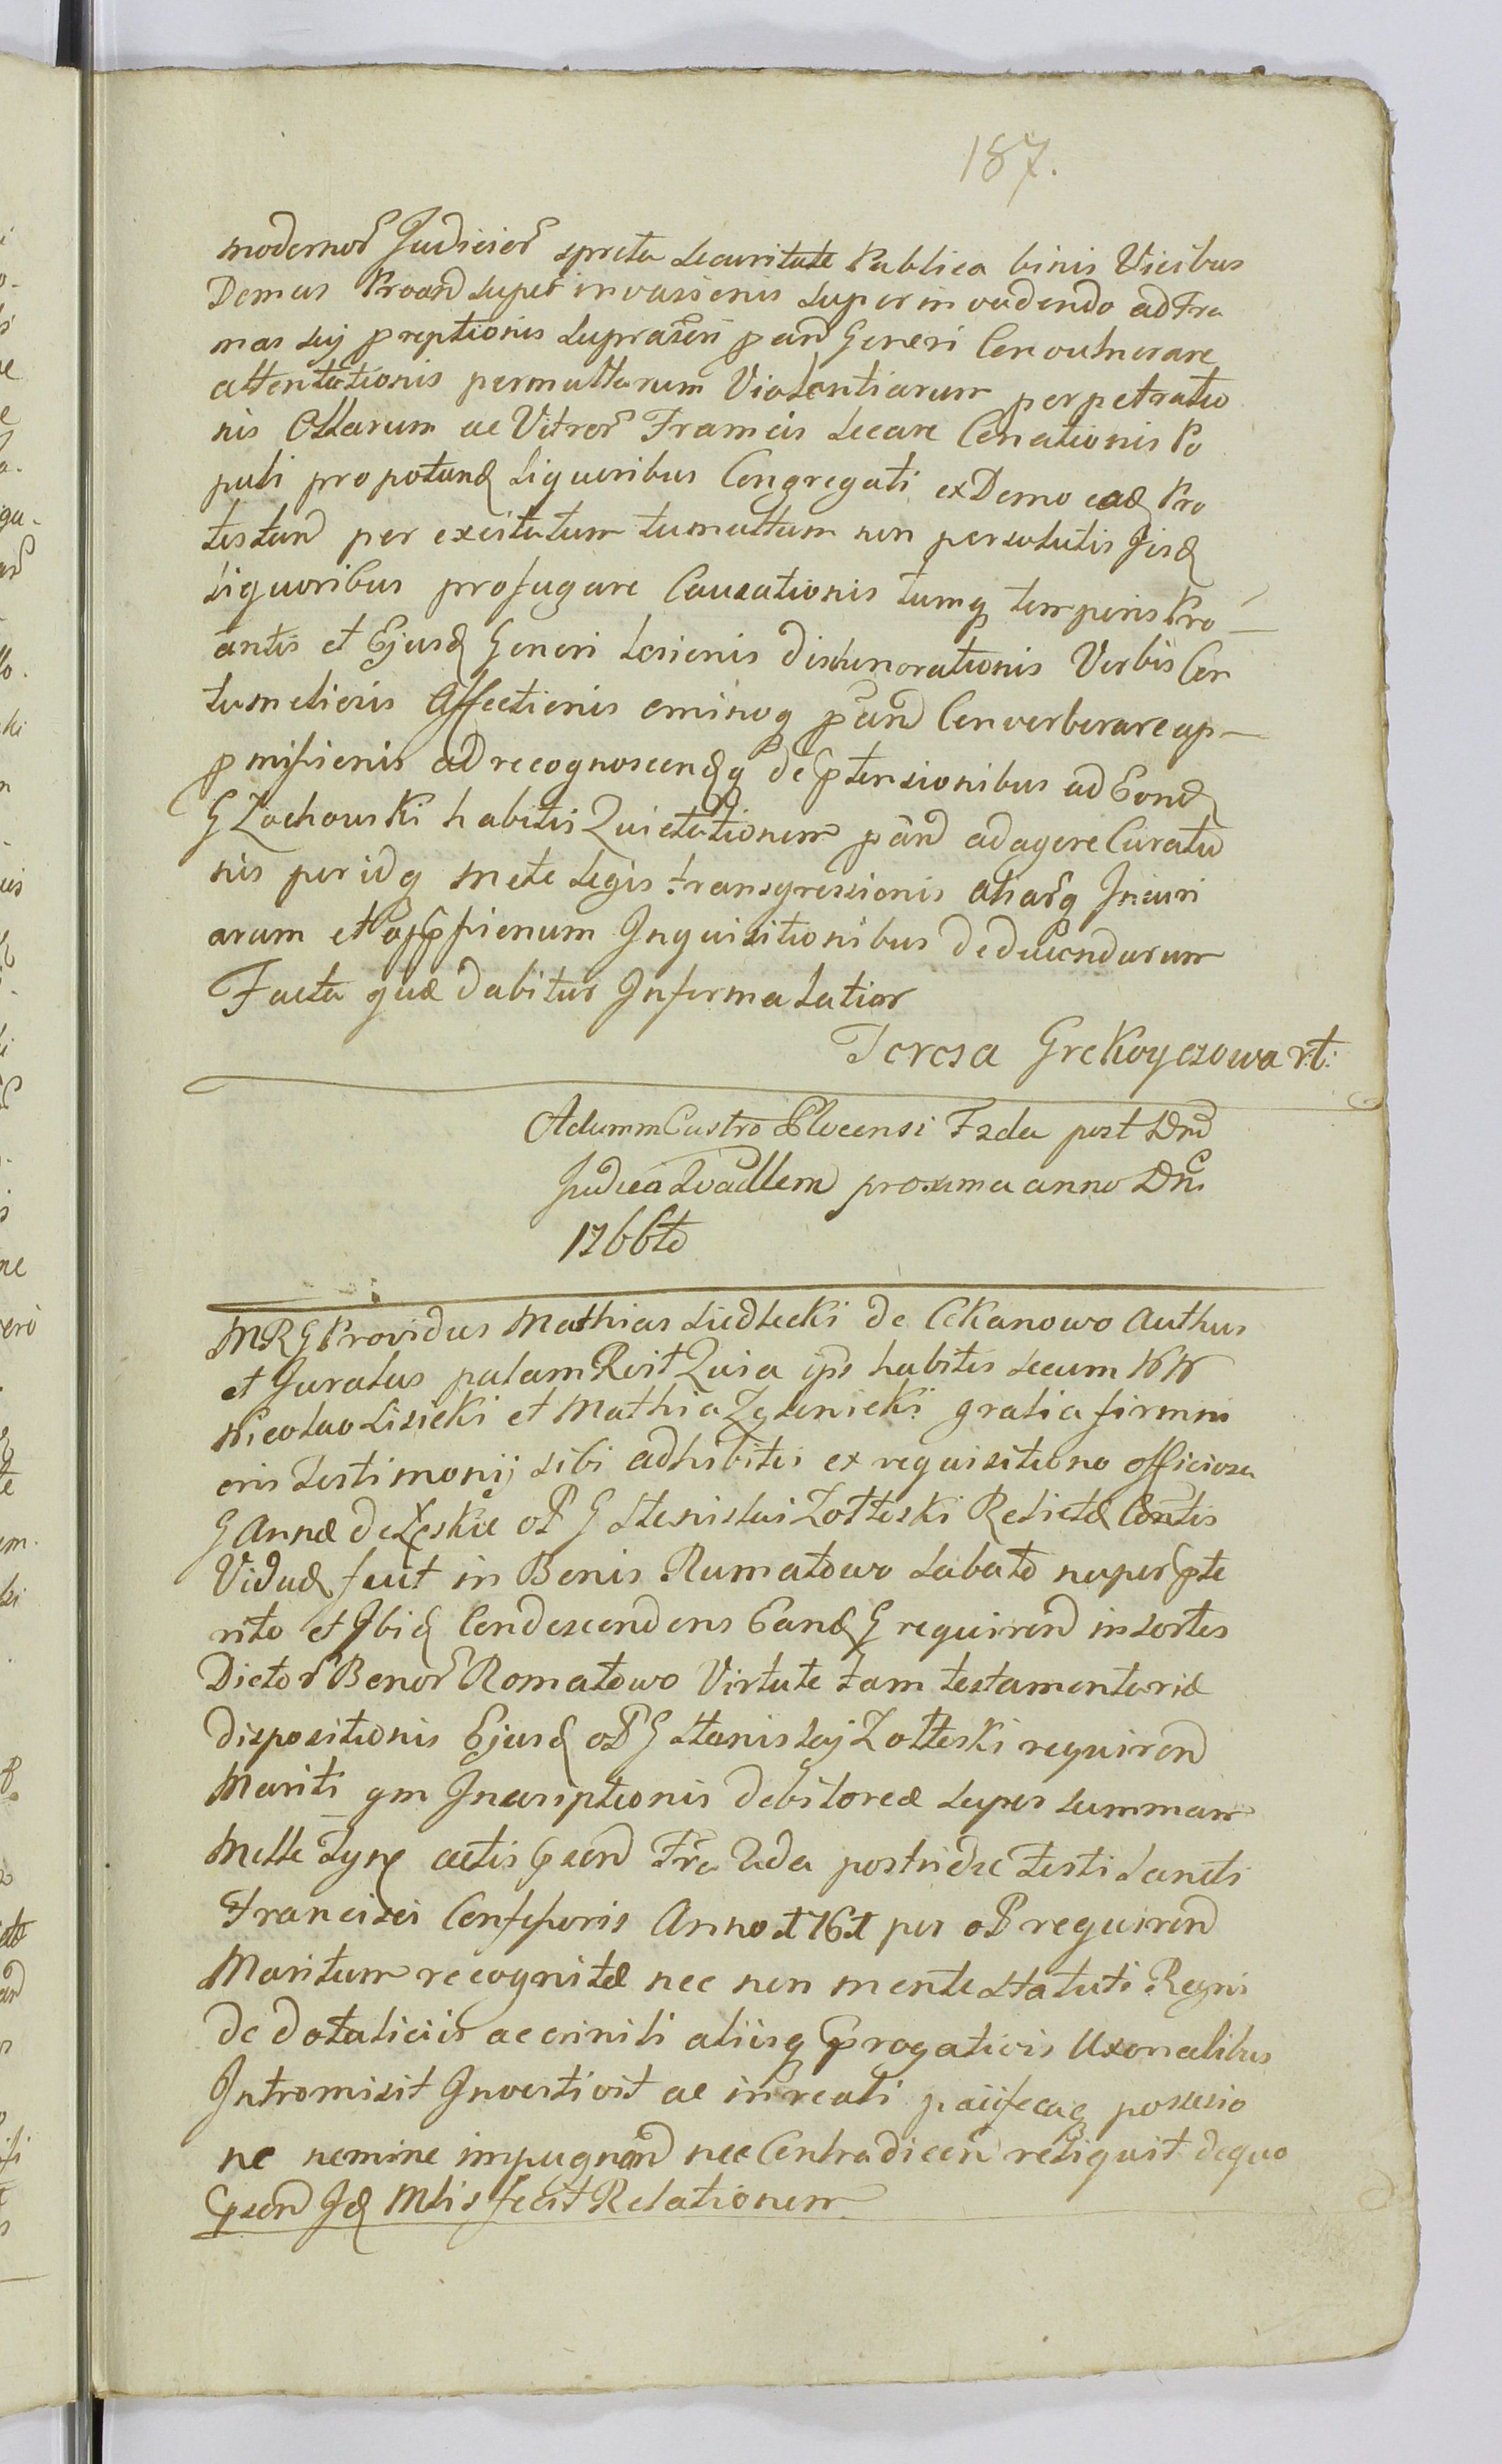 187.
modernor Judicior spreta Securitate Publica binis Vicibus
Domus Proand super invasionis superinvadendo ad Fra
mas suj preptionis supraseri pand Generi Convulnerare
attentationis permultarum Violentiarum perpetratio
nis Ollarum ac Vitror Frameis secare Conationis Po
puli propotand Liquoribus Congregati ex Domo ead Pro
testand per excitatum tumultum non persolutis Jisd
Liquoribus profugare Causationis tumq temporis Pro
antis et Ejusd Generi Lesionis dishonorationis Verbis Con
tumeliosis Affectionis eminoq pand Converberare ap
pmissionis ad recognoscendq de Ptensionibus ad Eond
G Zochowski habitis Quietationem pand adagere Curatio
nis per idq mete Legis transgressionis aliarq Iniuri
arum et oppssionum Inquisitionibus deducendarum
Facta quæ dabitur Informa Latior
Teresa Grekoyczowa r:t:
Actum in Castro Plocensi Fada post Dnd
Judica Quadlem proxima anno Dni
1766to
MRG Providus Mathias Siedlecki de Ckanowo Authus
et Juratus palam Rvit Quia ips habitis secum NN
Nicolao Lisicki et Mathia Zglenicki gratia firmni
oris testimonij sibi adhibitis ex requisitione officiosa
G Annæ de Łęskie oP G Stanislai Zołtoski Relictæ Contis
Viduæ fuit in Bonis Rumatowo Sabato nuper pte
rito et Ibid Condescendens Eand G requirend in sortes
Dictor Bonor Romatowo Virtute tam testamentoriæ
dispositionis Ejusd oP G Stanislaj Zołtoski requirend
Mariti qm Inscriptionis debitoreæ super summam
Mille Tynf actis psend Fra 2da postridie festi Sancti
Francisci Confssoris Anno 1761 per oP requirend
Maritum recognitæ nec non mente Statuti Regni
de dotaliciis ac crinili aliisq prrogativis Uxoralibus
Intromisit Investivit ac in reali pacificaq possesio
ne nemine impugnand nec Contradicen reliquit dequo
psend Id Mlis fecit Relationem